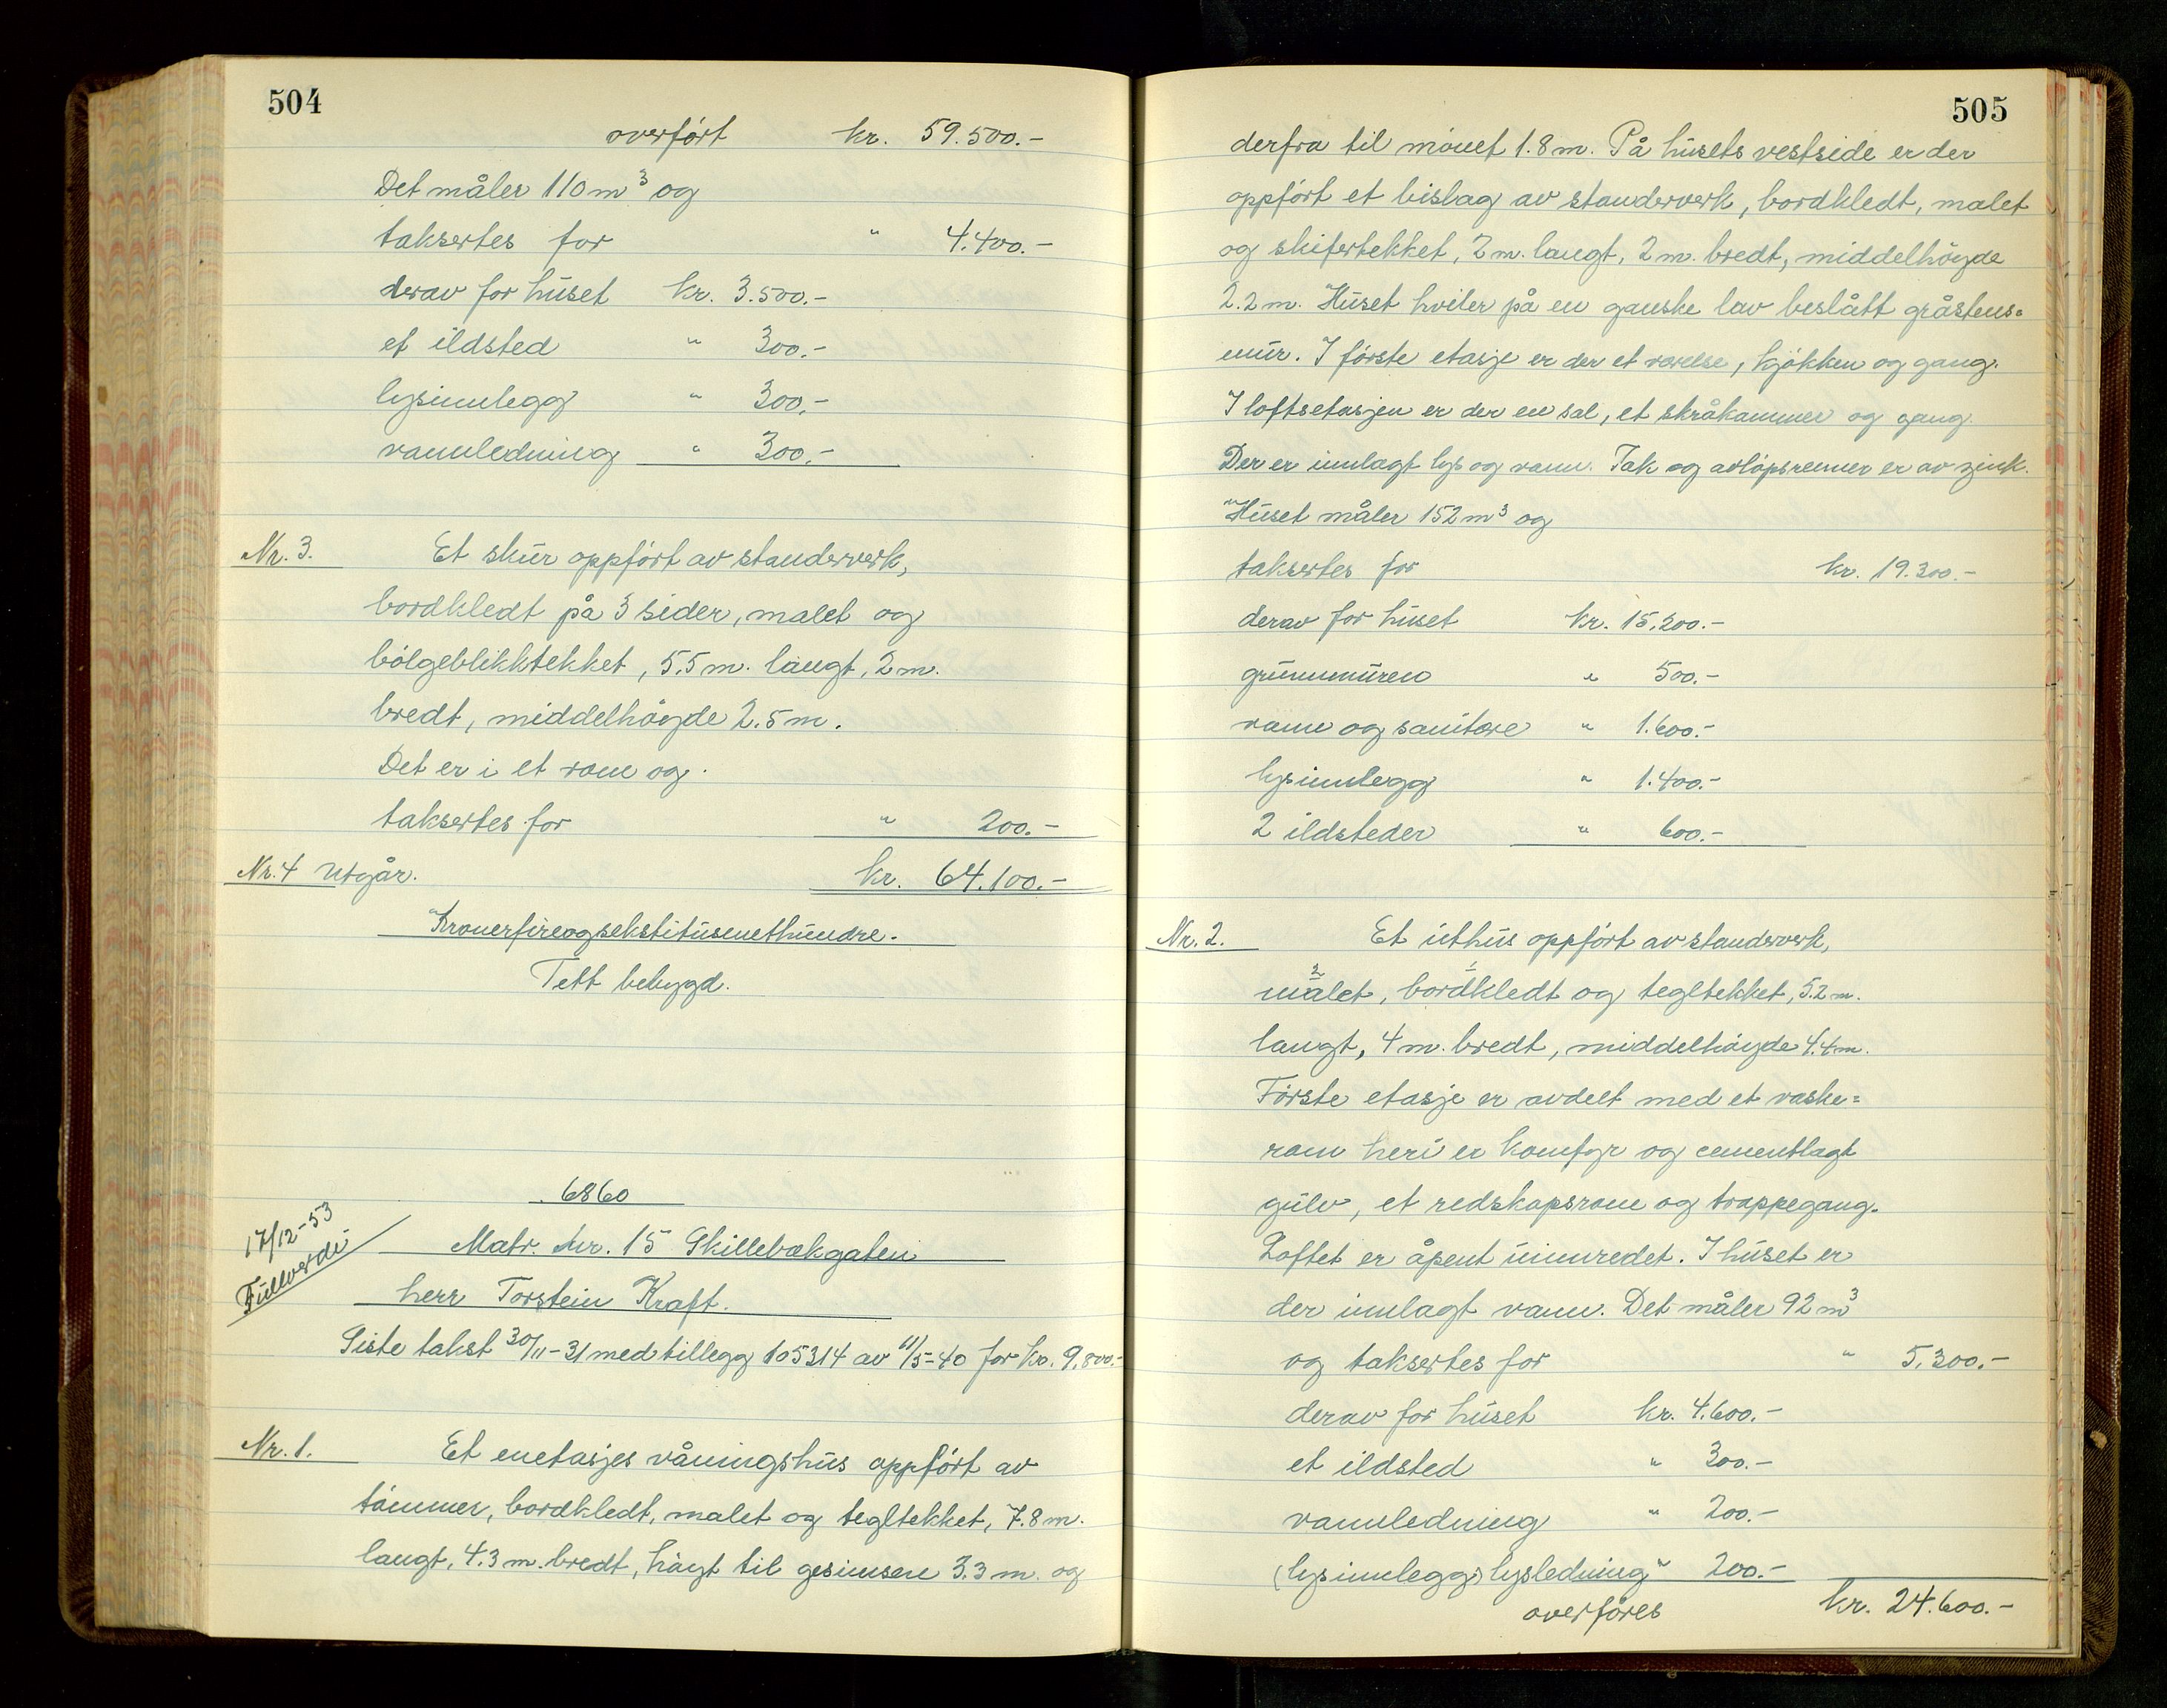 504
overført kr. 59.500.-
Det måler 110 m³ og
taksertes for " 4.400.-
derav for huset kr. 3.500.-
et ildsted " 300.-
lysinnlegg " 300.-
vannledning " 300.-
Nr. 3. Et skur oppført av standerverk,
bordkledt på 3 sider, malet og
bølgeblikktekket, 5.5 m. langt, 2 m.
bredt, middelhøyde 2.5 m.
Det er i et rom og
taksertes for " 200.-
Nr. 4 utgår. kr. 64.100.-
Kronerfireogsekstitusenethundre.
Tett bebygd.
6860
17/12-53
Fullverdi
Matr. nr. 15 Skillebækgaten
herr Torstein Kraft.
Siste takst 30/11-31 med tillegg 105314 av 11/5-40 for kr. 9.800.-
Nr. 1. Et enetasjes våningshus oppført av
tømmer, bordkledt, malet og tegltekket, 7.8 m.
langt, 4.3 m. bredt, høyt til gesimsene 3.3 m. og
505
derfra til mønet 1.8 m. På husets vestside er der
oppført et bislag av standerverk, bordkledt, malet
og skifertekket, 2 m. langt, 2 m. bredt, middelhøyde
2.2 m. Huset hviler på en ganske lav beslått gråstens=
mur. I første etasje er der et værelse, kjøkken og gang.
I loftsetasjen er der en sal, et skråkammer og gang.
Der er innlagt lys og vann. Tak og avløpsrenner er av zink.
Huset måler 152 m³ og
taksertes for kr. 19.300.-
derav for huset kr. 15.200.-
grunnmuren " 500.-
vann og sanitære " 1.600.-
lysinnlegg " 1.400.-
2 ildsteder " 600.-
Nr. 2. Et uthus oppført av standerverk,
2 1
malet, bordkledt og tegltekket, 5.2 m.
langt, 4 m. bredt, middelhøyde 4.4 m.
Første etasje er avdelt med et vaske=
rom heri er komfyr og cementlagt
gulv, et redskapsrom og trappegang.
Loftet er åpent uinnredet. I huset er
der innlagt vann. Det måler 92 m³
og taksertes for " 5.300.-
derav for huset kr. 4.600.-
et ildsted " 300.-
vannledning " 200.-
(lysinnlegg) lysledning " 200.-
overføres kr. 24.600.-